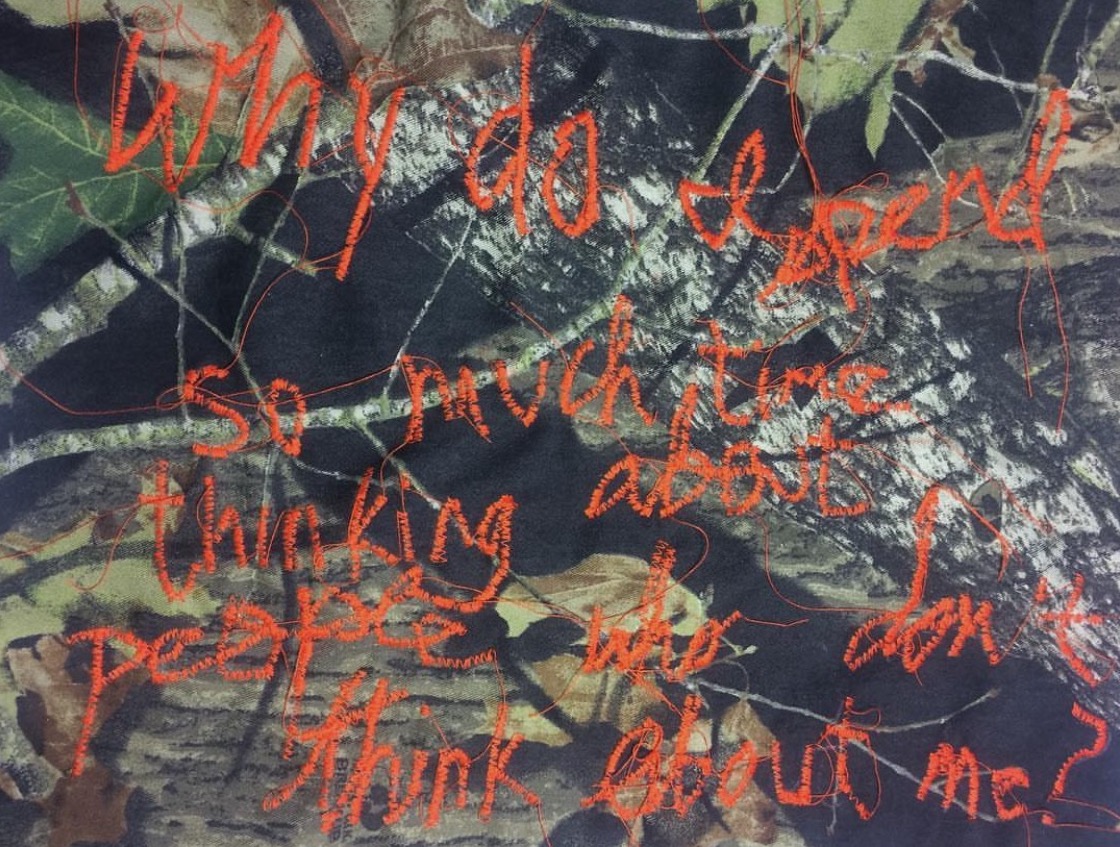 Why do I spend
so much time
thinking about
people who don't
think about me?